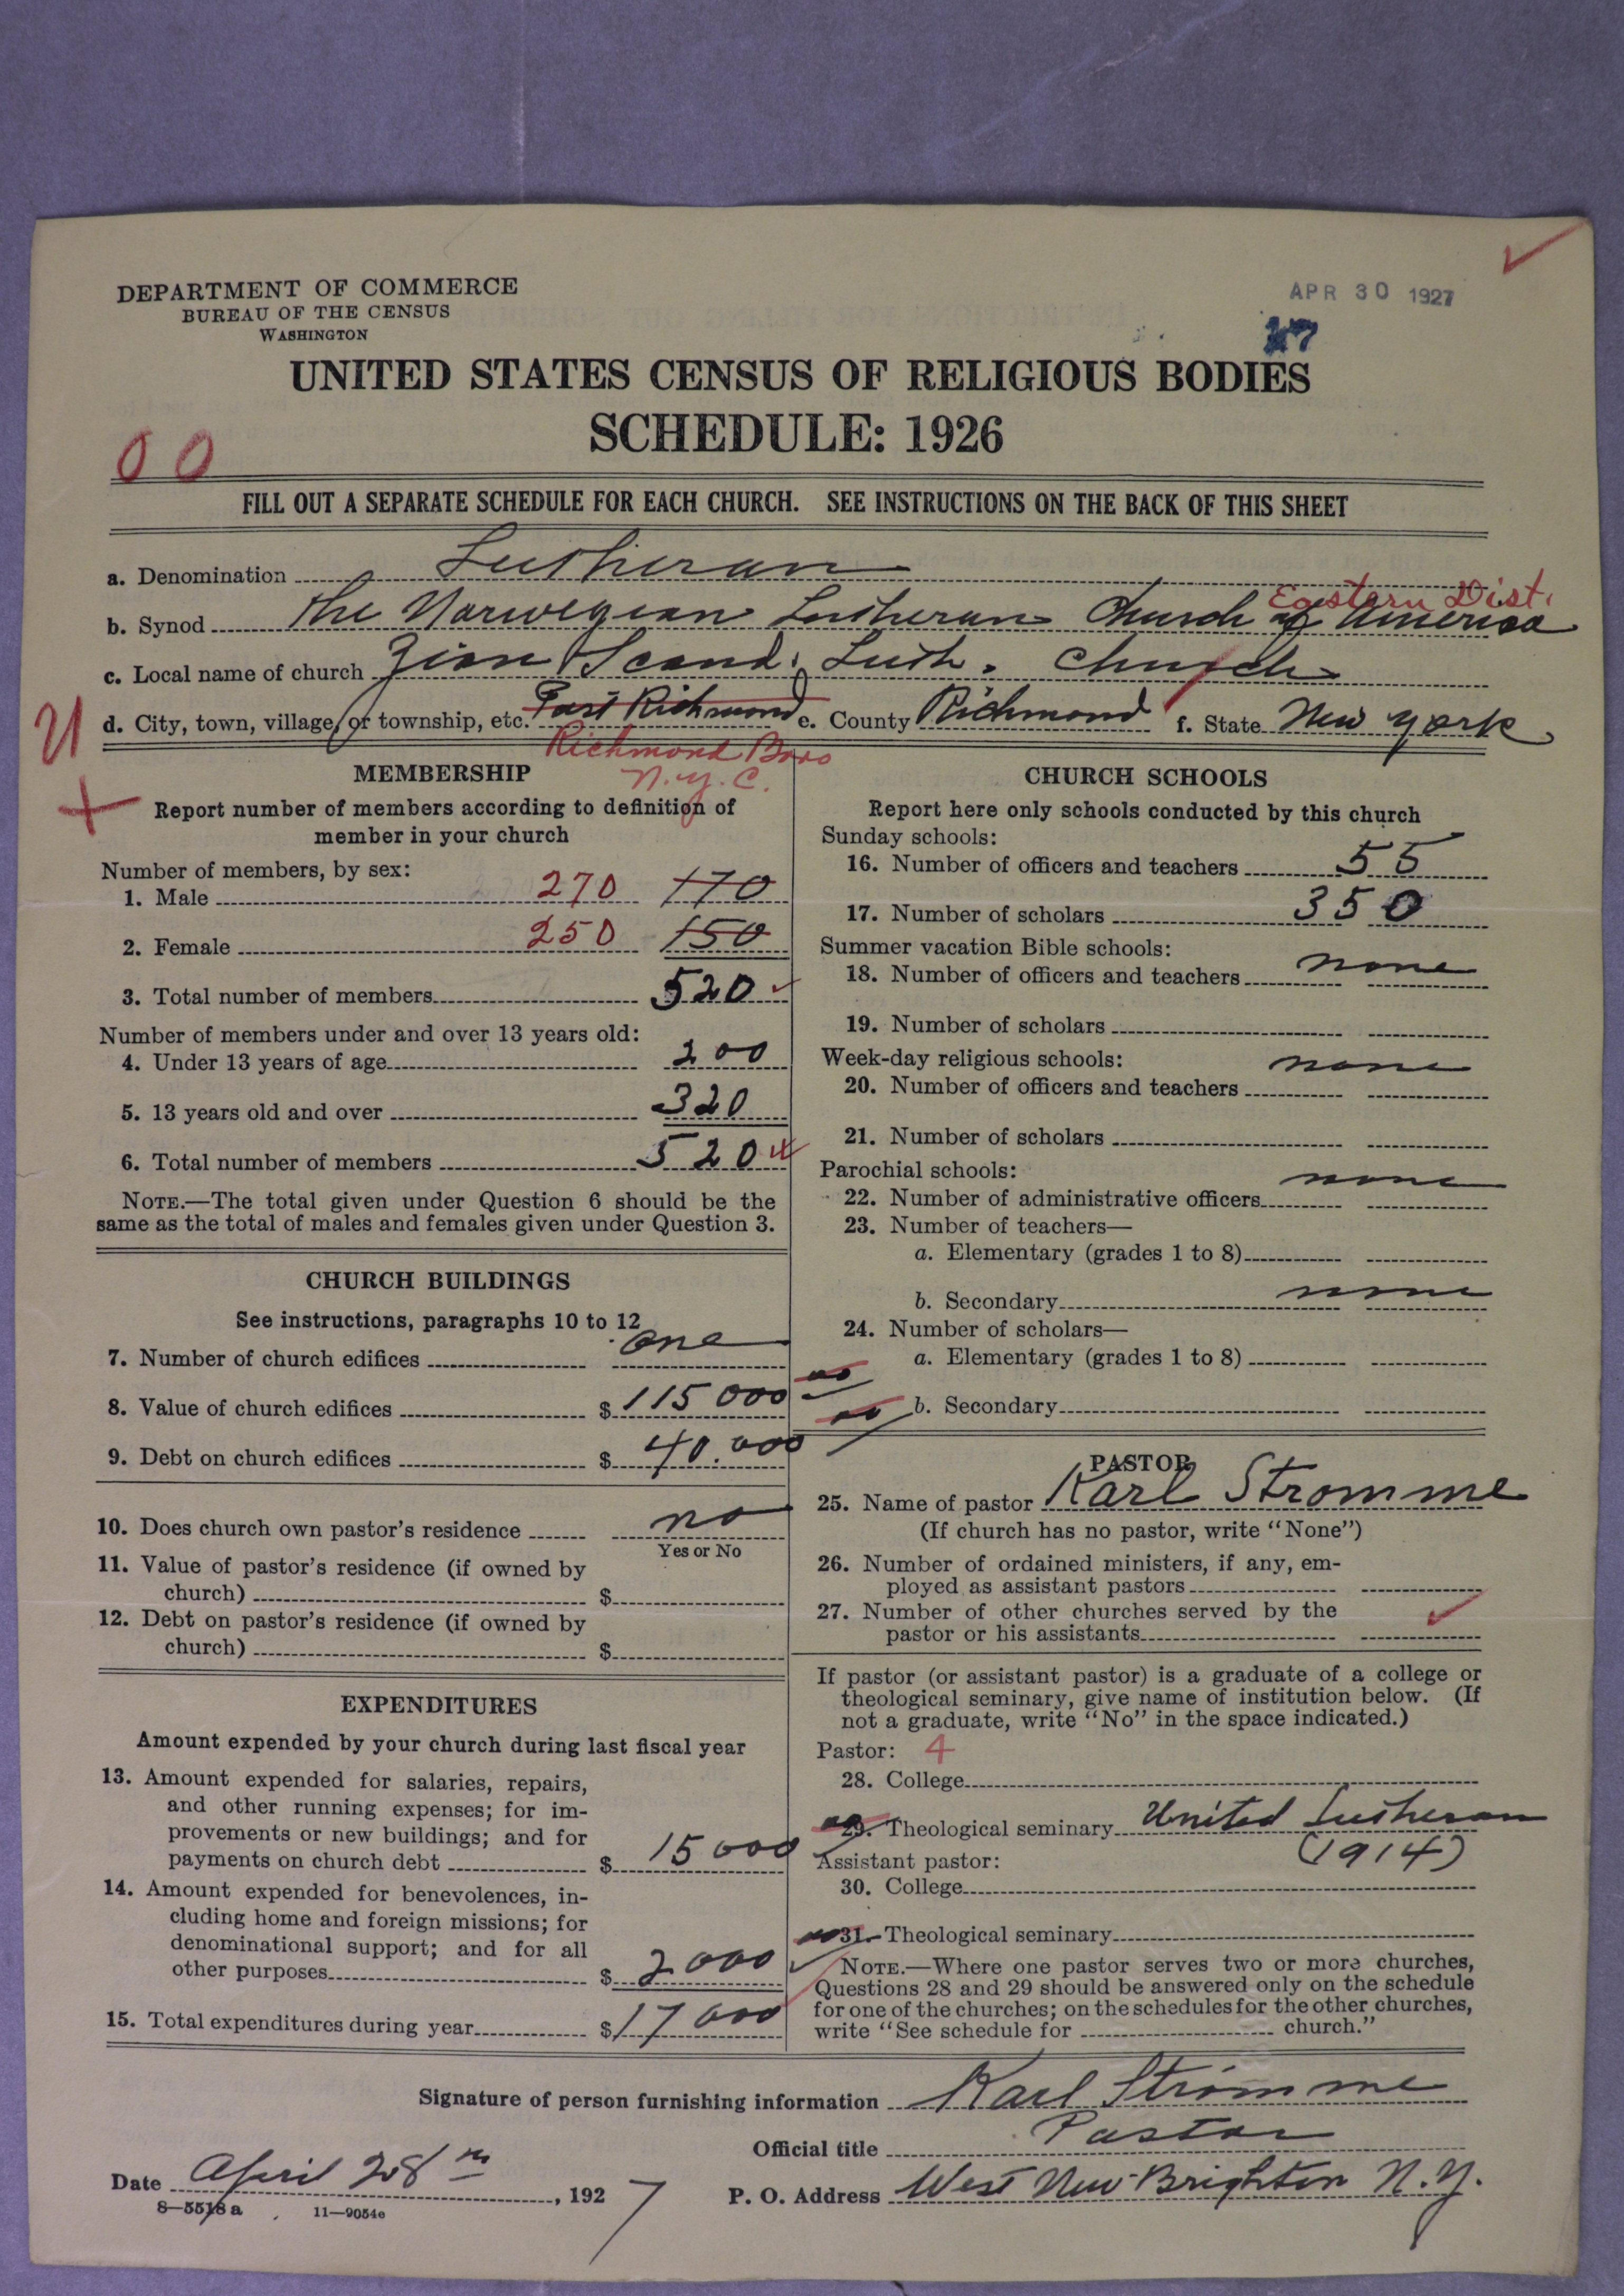 DEPARTMENT OF COMMERCE
BUREAU OF THE CENSUS
WASHINGTON
APR 30 1927
UNITED STATES CENSUS OF RELIGIOUS BODIES
SCHEDULE: 1926
00
FILL OUT A SEPARATE SCHEDULE FOR EACH CHURCH. SEE INSTRUCTIONS ON THE BACK OF THIS SHEET
a. Denomination Lutheran
Eastern Dist.
b. Synod The Norwegian Lutheran Church of America
c. Local name of church Zion Scand. Luth. Church
d. City, town, village, or township, etc. Port Richmond e. County Richmond f. State New York
Richmond Boro
N.Y.C.
MEMBERSHIP
Report number of members according to definition of
member in your church
Number of members, by sex:
1. Male 270 170
2. Female 250 150
3. Total number of members 520
Number of members under and over 13 years old:
4. Under 13 years of age 200
5. 13 years old and over 320
6. Total number of members 520
NOTE.—The total given under Question 6 should be the
same as the total of males and females given under Question 3.
CHURCH BUILDINGS
See instructions, paragraphs 10 to 12
7. Number of church edifices one
8. Value of church edifices $ 115 000 00
9. Debt on church edifices $ 40.000 00
10. Does church own pastor's residence no
Yes or No
11. Value of pastor's residence (if owned by
church) $
12. Debt on pastor's residence (if owned by
church) $
EXPENDITURES
Amount expended by your church during last fiscal year
13. Amount expended for salaries, repairs,
and other running expenses; for im-
provements or new buildings; and for
payments on church debt $ 15 000 00
14. Amount expended for benevolences, in-
cluding home and foreign missions; for
denominational support; and for all
other purposes $ 2000 00
15. Total expenditures during year $ 17 000
CHURCH SCHOOLS
Report here only schools conducted by this church
Sunday schools:
16. Number of officers and teachers 55
17. Number of scholars 350
Summer vacation Bible schools:
18. Number of officers and teachers none
19. Number of scholars
Week-day religious schools:
none
20. Number of officers and teachers
21. Number of scholars
Parochial schools:
22. Number of administrative officers none
23. Number of teachers—
a. Elementary (grades 1 to 8)
b. Secondary none
24. Number of scholars—
a. Elementary (grades 1 to 8)
b. Secondary
PASTOR
25. Name of pastor Karl Stromme
(If church has no pastor, write "None")
26. Number of ordained ministers, if any, em-
ployed as assistant pastors
27. Number of other churches served by the
pastor or his assistants
If pastor (or assistant pastor) is a graduate of a college or
theological seminary, give name of institution below. (If
not a graduate, write "No" in the space indicated.)
Pastor: 4
28. College
29. Theological seminary United Lutheran
(1914)
Assistant pastor:
30. College
31. Theological seminary
NOTE.—Where one pastor serves two or more churches,
Questions 28 and 29 should be answered only on the schedule
for one of the churches; on the schedules for the other churches,
write "See schedule for church."
Signature of person furnishing information Karl Stromme
Official title Pastor
Date April 28th, 1927
P. O. Address West New Brighton N.Y.
8—5518 a 11—9054e